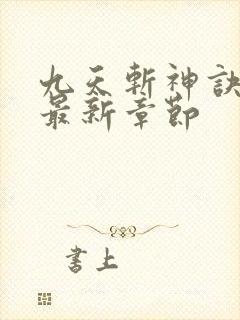 九天斬神訣
最新章節
書上